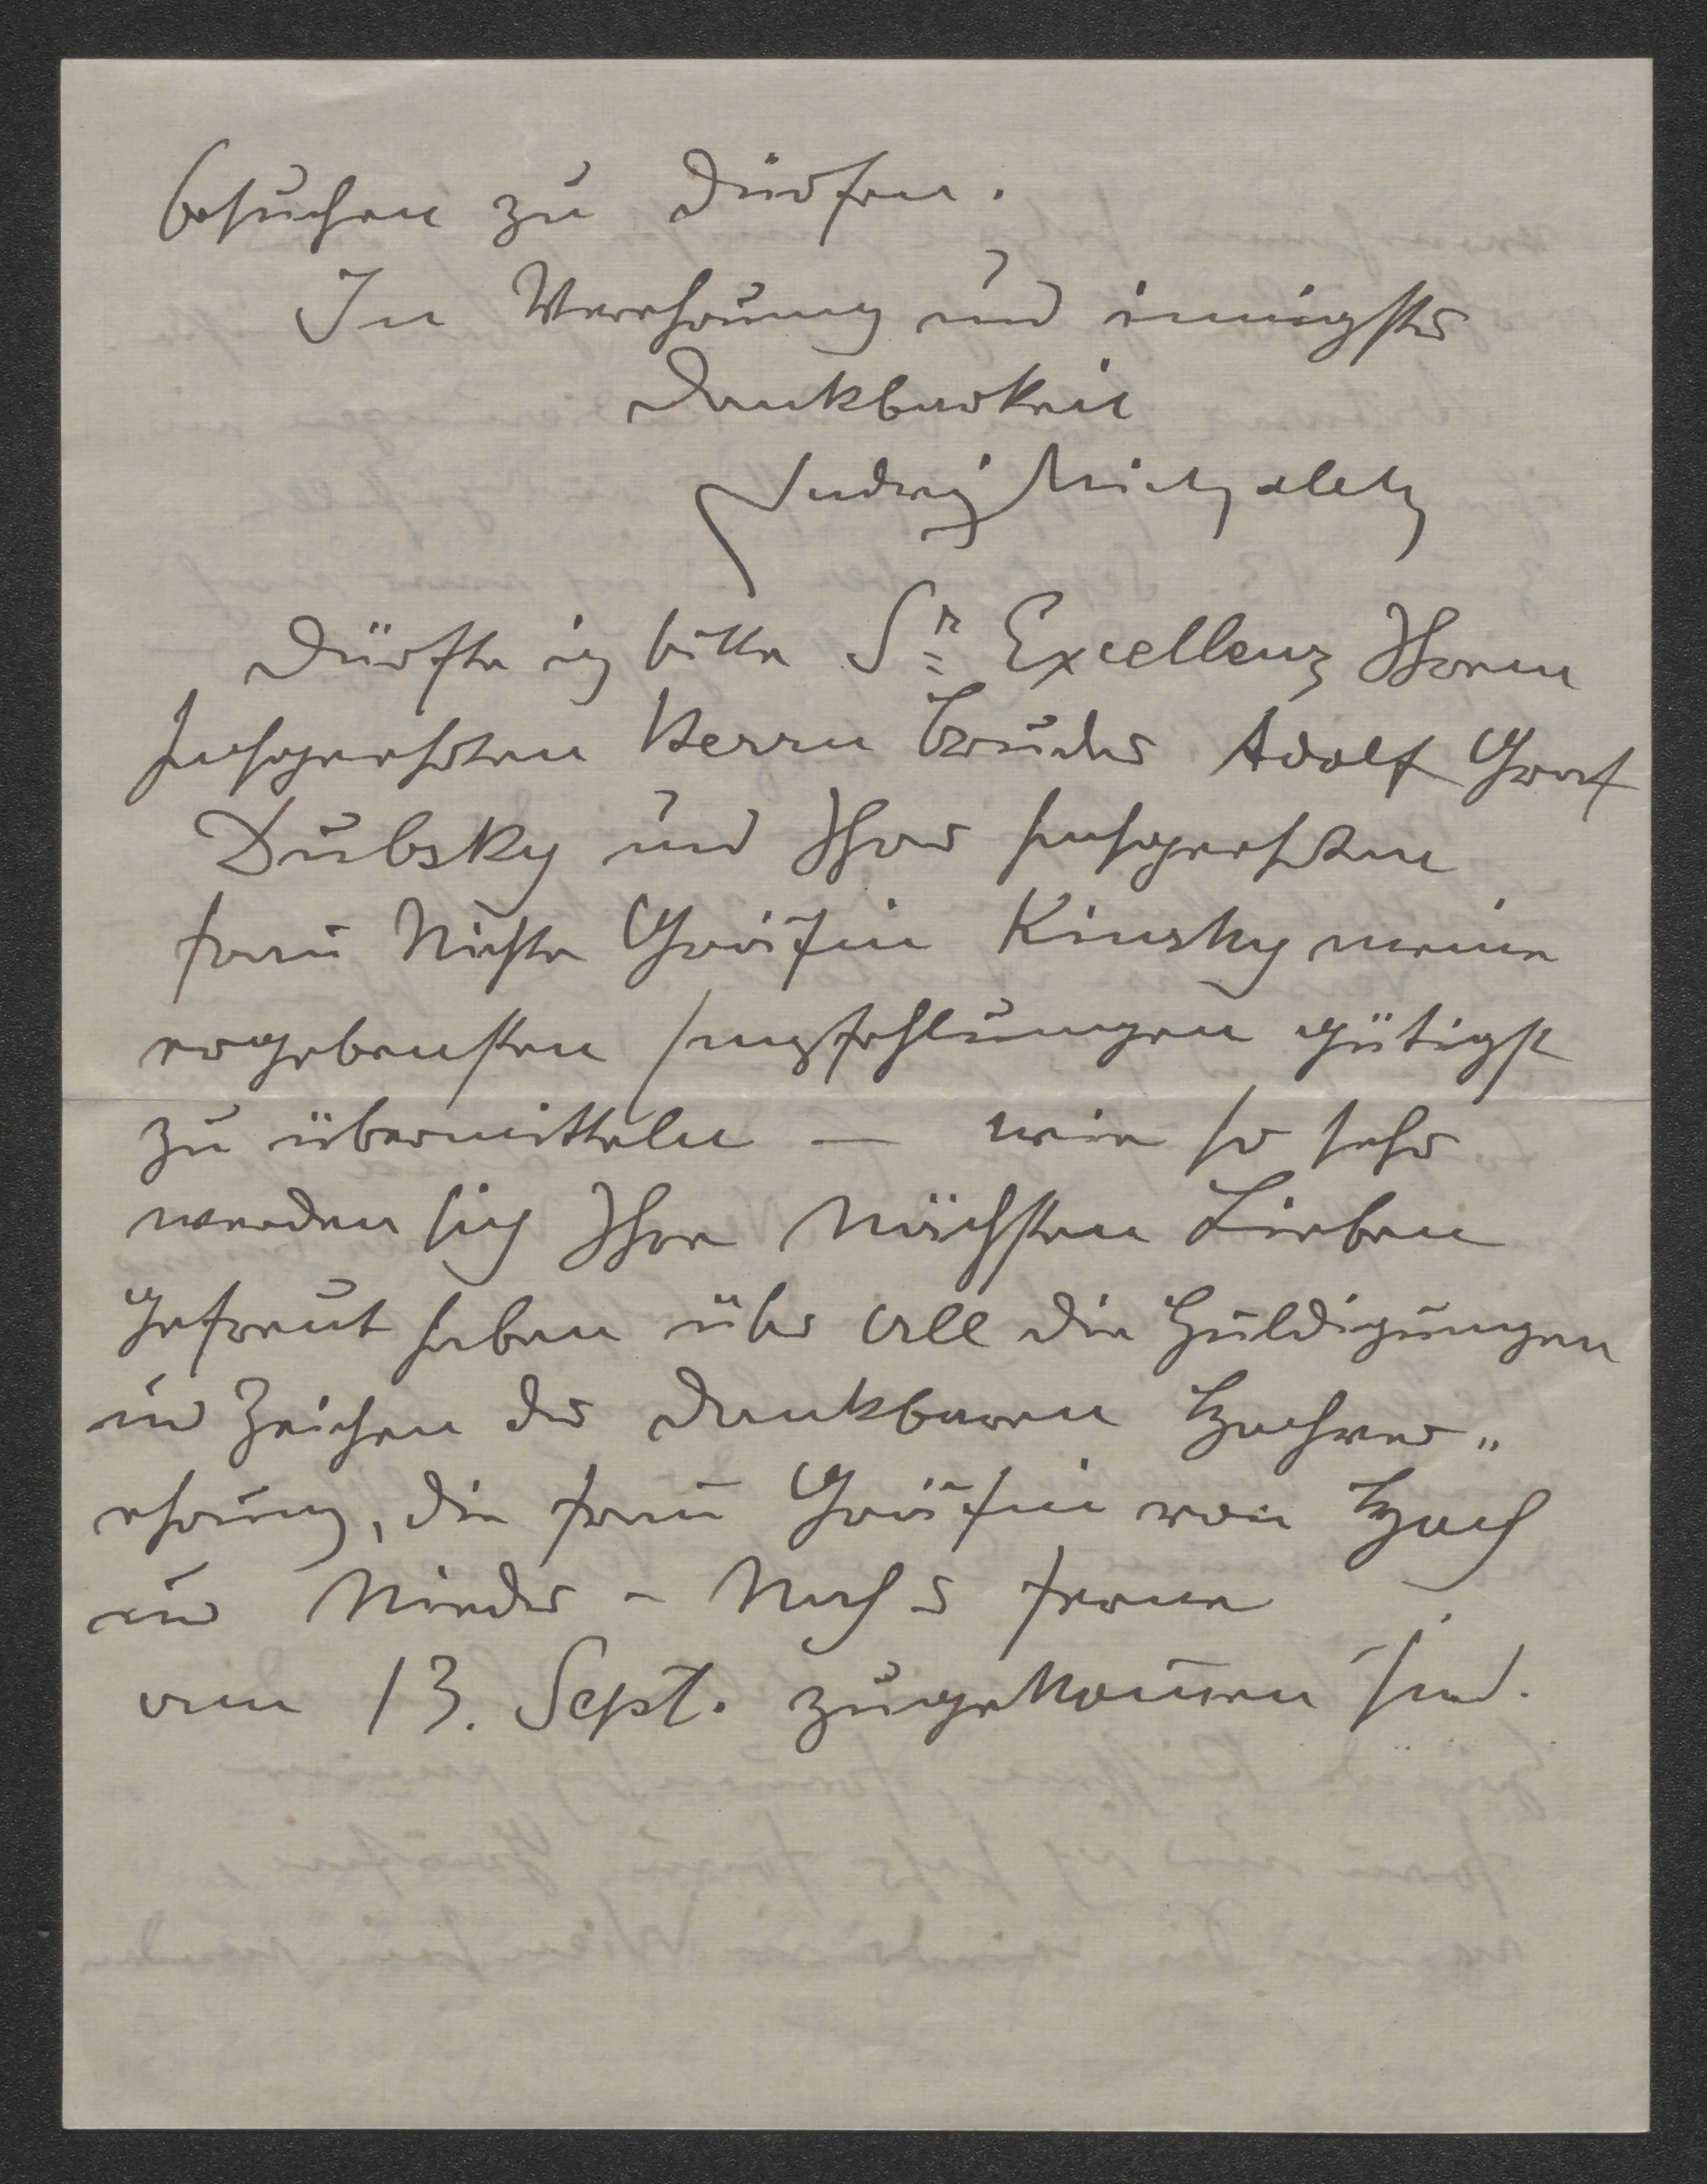 besuchen zu dürfen.
In Verehrung und innigster
Dankbarkeit
Ludwig Michalek
Dürfte ich bitte Sr Excellenz Ihrem
hochgeehrten Herrn Bruder Adolf Graf
Dubsky und Ihrer hochgeehrten
Frau Nichte Gräfin Kinsky meine
ergebensten Empfehlungen gütigst
zu übermitteln — wie so sehr
werden sich Ihre Nächsten Lieben
gefreut haben über all die Huldigungen
und Zeichen der dankbaren Hochver„
ehrung, die Frau Gräfin von Hoch
und Nieder - Nach u Ferne
am 13. Sept. zugekom̅en sind.